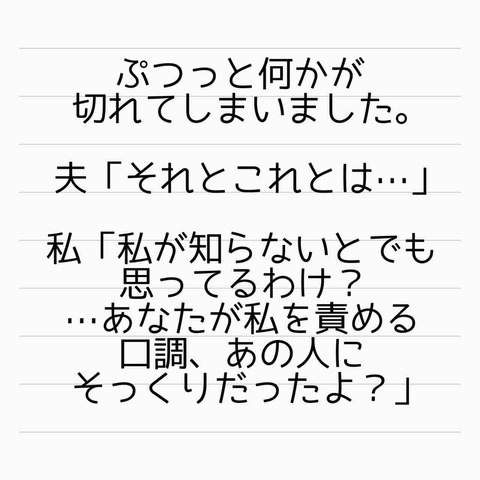 ぷつっと何かが
切れてしまいました。
夫「それとこれとは…」
私「私が知らないとでも
思ってるわけ？
…あなたが私を責める
口調、あの人に
そっくりだったよ？」